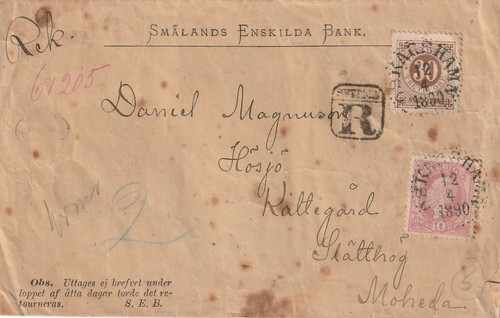 SMÅLANDS ENSKILDA BANK.
Rek.
61205
30
12
4
1890
SVERIGE
R
Daniel Magnuson
Hösjö
Kättegård
Slätthög
Moheda
12
4
1890
10
2
5
Obs. Uttages ej brefvet under
loppet af åtta dagar torde det re-
tourneras. S. E. B.